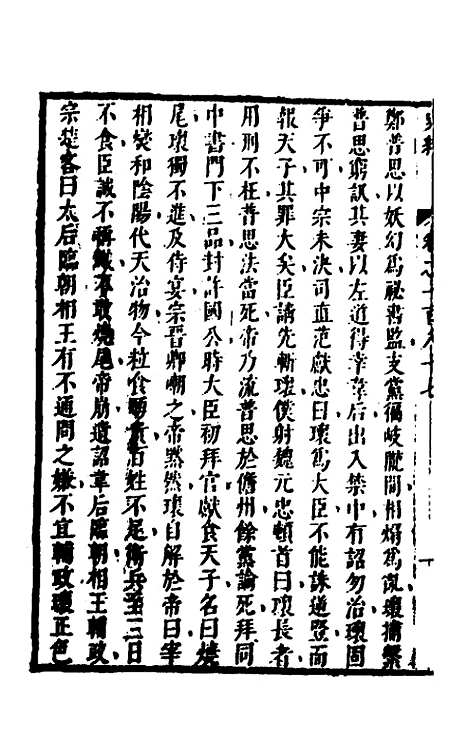 鄭普思以妖幻爲祕書監支黨徧岐隴間相煽爲亂瓌捕繫
普思窮訊其妻以左道得幸韋后出入禁中有詔勿治瓌固
爭不可中宗未決司直范獻忠曰瓌爲大臣不能誅逆豎而
報天子其罪大矣臣請先斬瓌僕射魏元忠頓首曰瓌長者
用刑不枉普思法當死帝乃流普思於儋州餘黨論死拜同
中書門下三品封許國公時大臣初拜官獻食天子名曰燒
尾瓌獨不進及侍宴宗晉卿嘲之帝默然瓌自解於帝曰宰
相燮和陰陽代天治物今粒食踴貴百姓不足衛兵至三日
不食臣誠不稱職不敢燒尾帝崩遺詔韋后臨朝相王輔政
宗楚客曰太后臨朝相王有不通問之嫌不宜輔政瓌正色